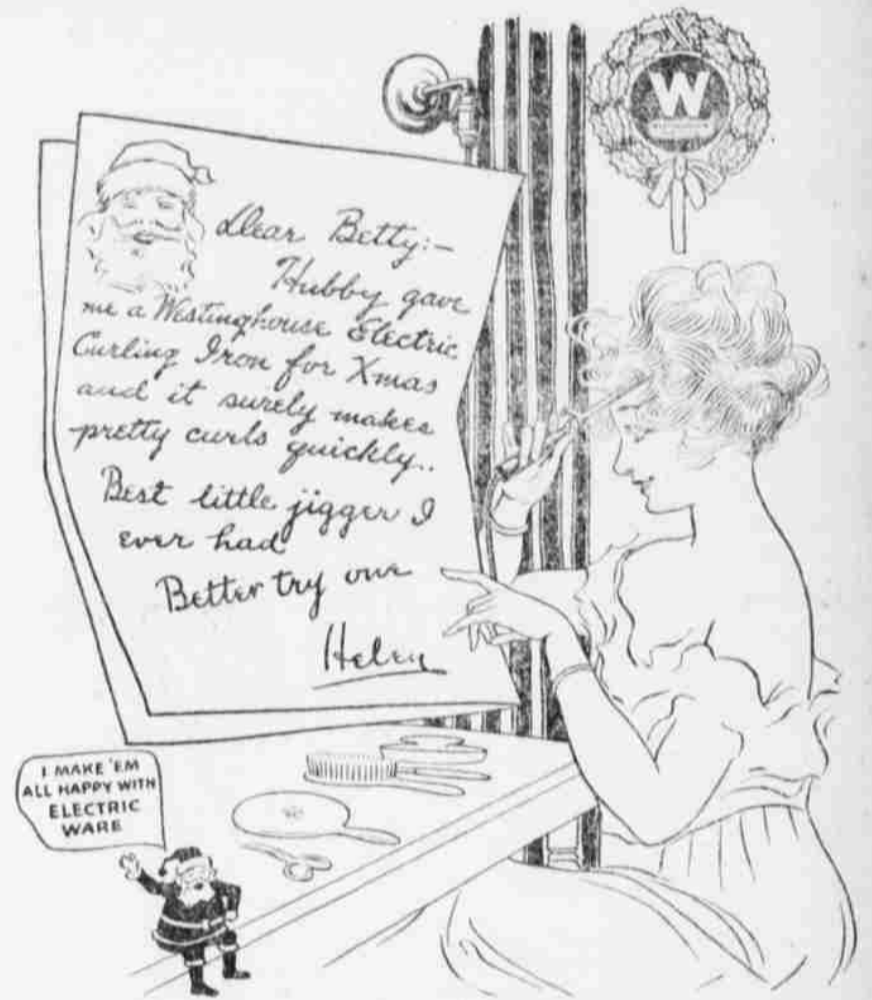 W
Dear Betty:-
Hubby gave
me a Westinghouse Electric
Curling Iron for Xmas
and it surely makes
pretty curls quickly..
Best little jigger I
ever had
Better try one
Helen
I MAKE 'EM
ALL HAPPY WITH
ELECTRIC
WARE